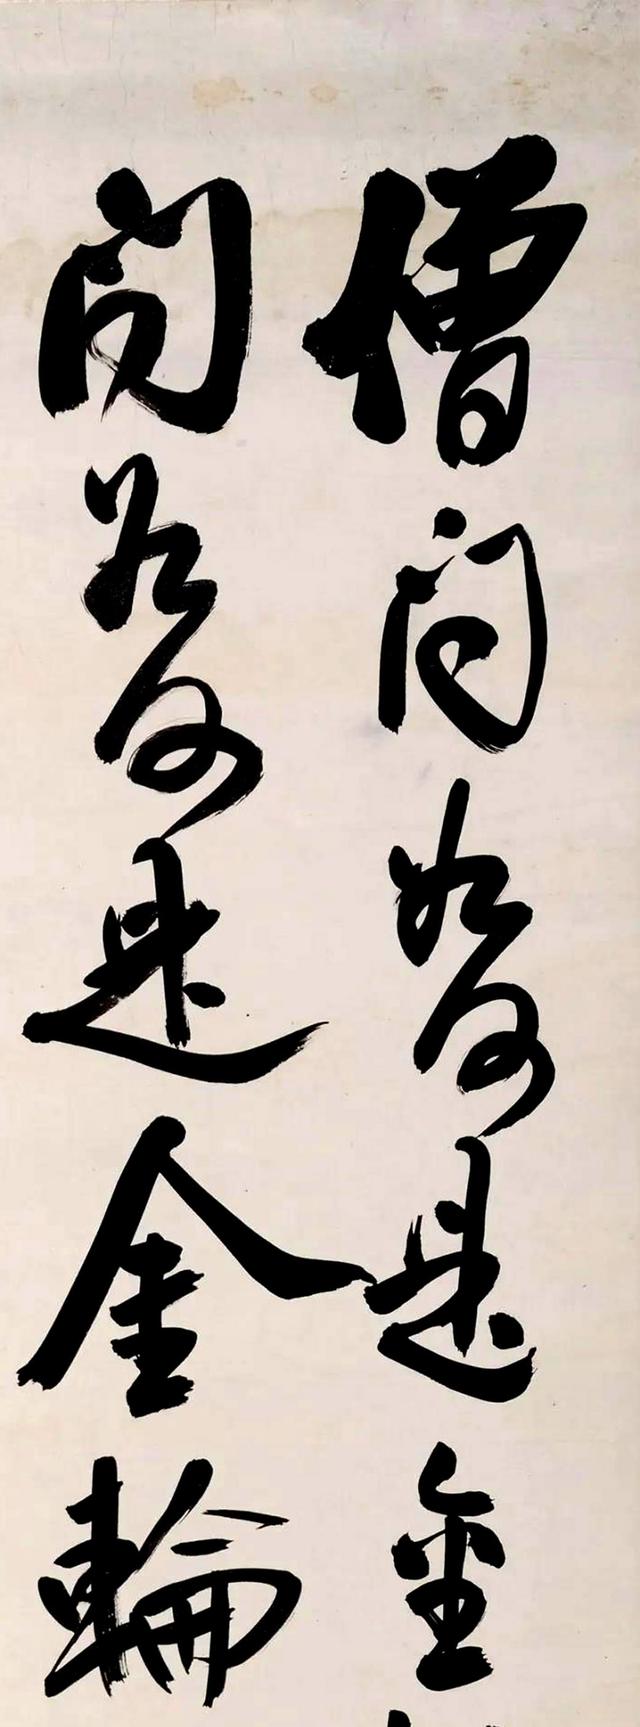 僧問如何是金
問如何是金輪